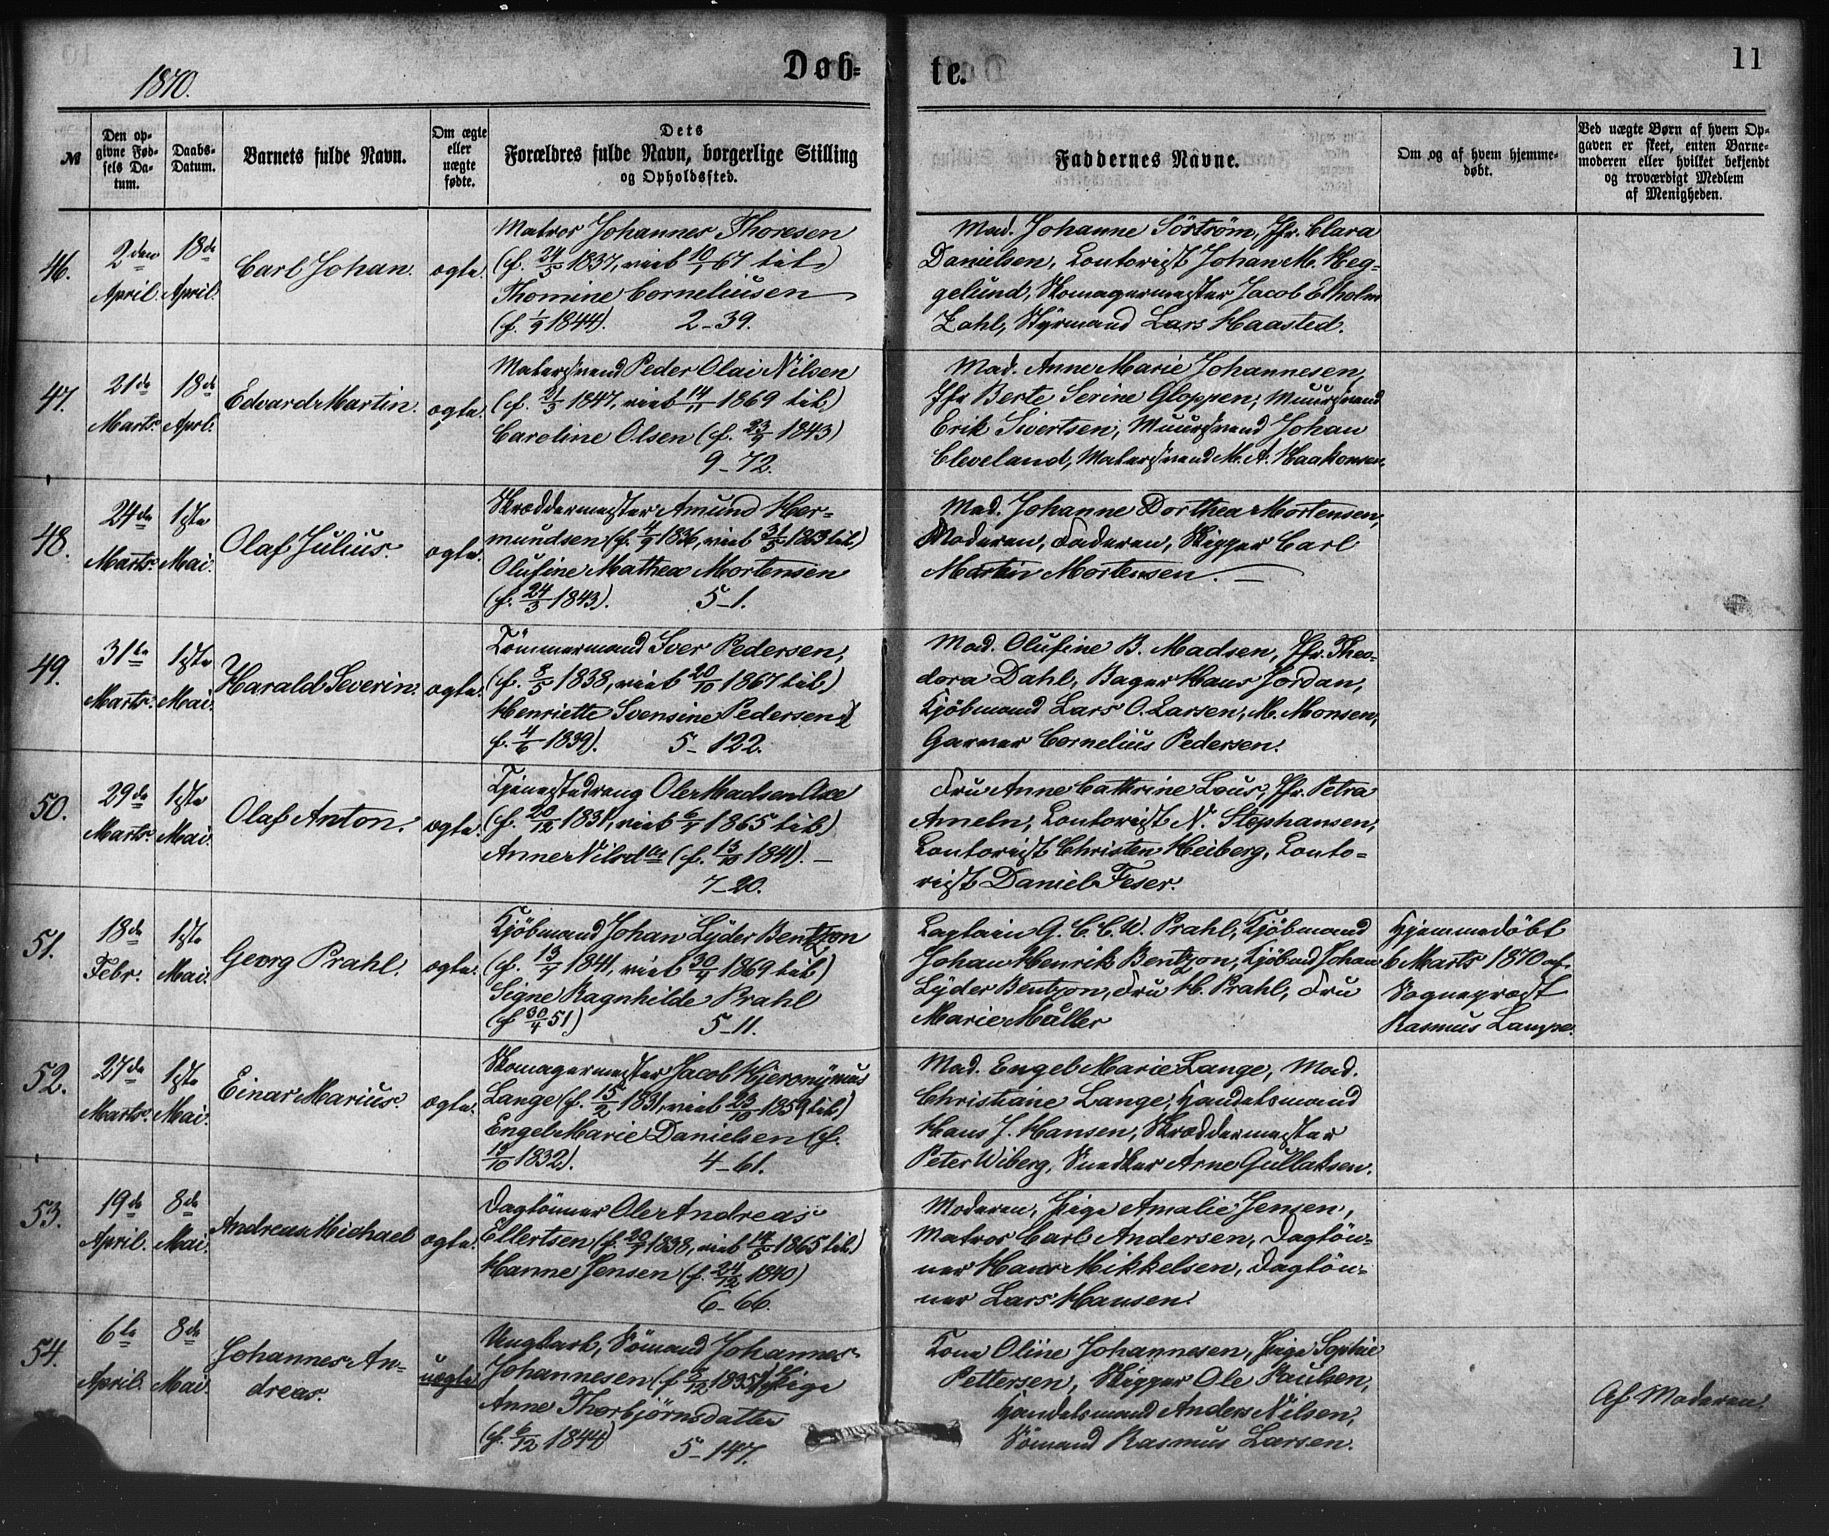 1870.
Døb-
te.
11
№
Den op-
givne Fød-
sels Da-
tum.
Daabs-
Datum.
Barnets fulde Navn.
Om ægte
eller
uægte
fødte.
Dets
Forældres fulde Navn, borgerlige Stilling
og Opholdssted.
Faddernes Navne.
Om og af hvem hjemme-
døbt.
Ved uægte Børn af hvem Op-
gaven er skeet, enten Barne-
moderen eller hvilket bekjendt
og troværdigt Medlem
af Menigheden.
46.
2den
April.
18de
April.
Carl Johan.
ægte.
Matros Johannes Thoresen
(f. 24/5 1837, viet 10/1 67 til)
Thomine Corneliusen
(f. 1/9 1844). 2-39.
Mad. Johanne Söström, Jfr. Clara
Danielsen, Contorist Johan M. Heg-
gelund, Skomagermester Jacob Elholm
Zahl, Styrmand Lars Haasted.
47.
21de
Marts.
18de
Aprl.
Edvard Martin.
ægte.
Malersvend Peder Olai Nilsen
(f. 21/3 1847, viet 14/11 1869 til)
Caroline Olsen (f. 23/9 1843)
9-72.
Mad. Anne Marie Johannesen,
Jfr Berte Serine Gloppen, Muursvend
Erik Sivertsen, Muursvend Johan
Cleveland, Malersvend M. A. Haakonsen.
48.
24de
Marts.
1ste
Mai.
Olaf Julius.
ægte.
Skræddermester Amund Her-
mundsen (f. 4/9 1836, viet 31/5 1863 til)
Olufine Mathea Mortensen
(f. 24/3 1843). 5-1.
Mad. Johanne Dorthea Mortensen,
Moderen, Faderen, Skipper Carl
Martin Mortensen.
49.
31te
Marts.
1ste
Mai.
Harald Severin.
ægte.
Tömmermand Iver Pedersen,
(f. 8/5 1838, viet 20/10 1867 til)
Henriette Svensine Pedersen
f. 4/6 1839). 5-122.
Mad. Olufine B. Madsen, Jfr. Theo-
dora Dahl, Bager Hans Jordan,
Kjöbmand Lars O. Larsen, M. Monsen,
Garver Cornelius Pedersen.
50.
29de
Marts.
1ste
Mai.
Olaf Anton.
ægte.
Tjenestedreng Ole Madsen Oxe
(f. 20/12 1831, viet 6/1 1865 til)
Anne Nilsdtr (f. 13/10 1841).
7-20.
Fru Anne Cathrine Lous, Jfr. Petra
Ameln, Contorist N. Stephansen,
Contorist Christen Heiberg, Conto-
rist Daniel Feser.
51.
18de
Febr.
1ste
Mai.
Georg Prahl.
ægte.
Kjöbmand Johan Lyder Bentzon
(f. 13/7 1841, viet 30/4 1869 til)
Signe Ragnhilde Prahl
(f 30/4 51) 5-11.
Captain G. C. C. W. Prahl, Kjöbmand
Johan Henrik Bentzon, Kjöbmd Johan
Lyder Bentzon, Fru H. Prahl, Fru
Marie Müller
Hjemmedöbt
6 Marts 1870 af
Sognepræst
Rasmus Lampe.
52.
27de
Marts.
1ste
Mai.
Einar Marius.
ægte.
Skomagermester Jacob Hjeronymus
Lange (f. 15/2 1831, viet 23/10 1859 til)
Engel Marie Danielsen (f.
19/10 1832). 4-61.
Mad. Engel Marie Lange, Mad.
Christiane Lange, Handelsmand
Hans J. Hansen, Skræddermester
Peter Wiberg, Snedker Arne Gullaksen.
53.
19de
April.
8de
Mai.
Andreas Michael
ægte.
Daglönner Ole Andreas
Ellertsen (f. 20/7 1838, viet 14/5 1865 til)
Hanne Jensen (f. 24/12 1840)
6-66.
Moderen, Pige Amalie Jensen,
Matros Carl Andersen, Daglön-
ner Hans Mikkelsen, Daglön-
ner Lars Hansen.
54.
6te
April.
8de
Mai
Johannes An-
dreas.
uægte
Ungkarl, Sömand Johannes
Johannesen (f. 2/12 1835), Pige
Anne Thorbjørnsdatter
(f. 6/12 1844) 5-147.
Kone Oline Johannesen, Pige Sophie
Pettersen, Skipper Ole Paulsen,
Handelsmand Anders Nilsen,
Sömand Rasmus Larsen.
Af Moderen.